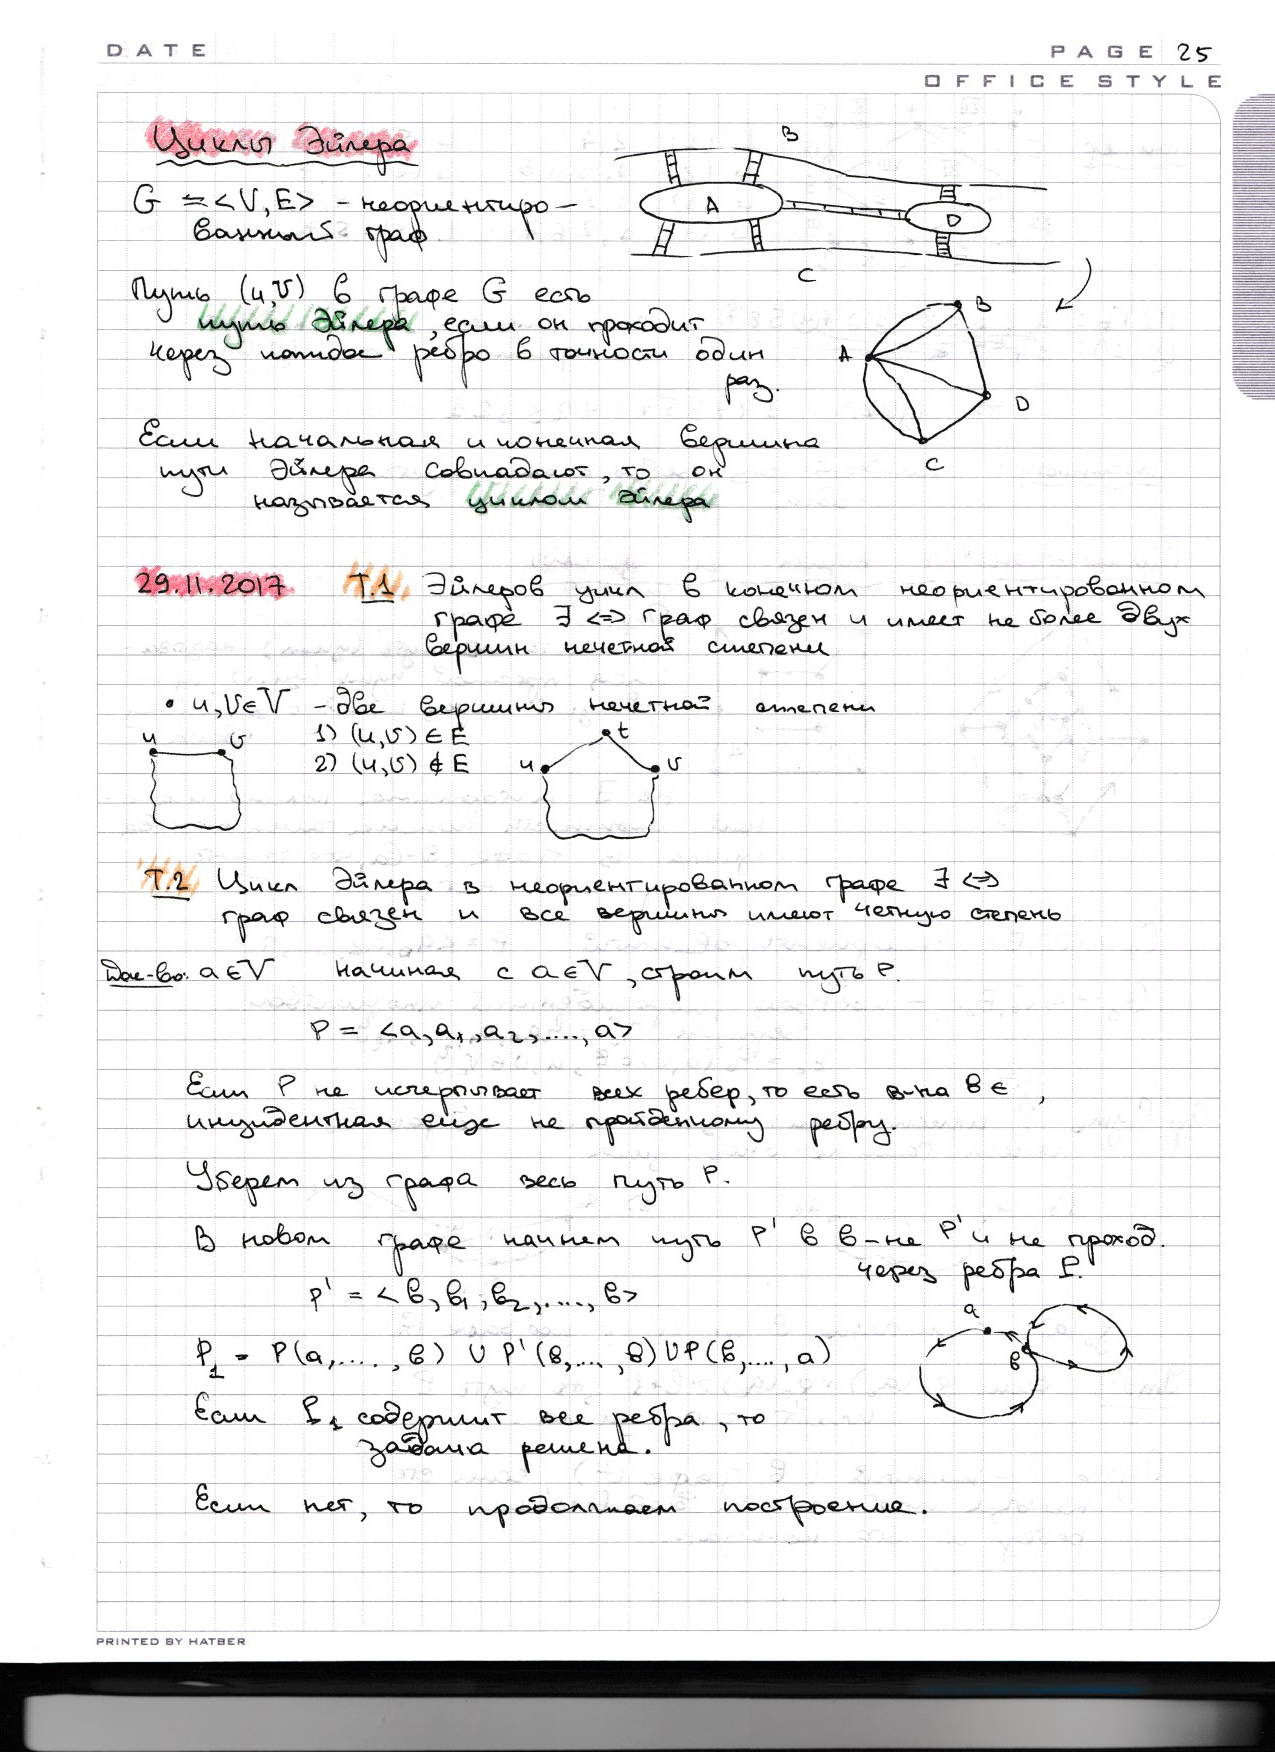 DATE
PAGE 25
OFFICE STYLE
Циклы Эйлера
G = <V, E> - неориентиро-
ванный граф
B
A
D
C
Путь (u, v) в графе G есть
путь Эйлера, если он проходит
через каждое ребро в точности один
раз.
B
A
D
C
Если начальная и конечная вершина
пути Эйлера совпадают, то он
называется циклом Эйлера
29.11.2017 Т.1 Эйлеров цикл в конечном неориентированном
графе ∃ <=> граф связен и имеет не более двух
вершин нечетной степени
• u, v ∈ V - две вершины нечетной степени
u v 1) (u, v) ∈ E t
2) (u, v) ∉ E u v
Т.2 Цикл Эйлера в неориентированном графе ∃ <=>
граф связен и все вершины имеют четную степень
Док-во: a ∈ V начиная с a ∈ V, строим путь P.
P = <a, a₁, a₂, ...., a>
Если P не исчерпывает всех ребер, то есть в-на в ∈ ,
инцидентная еще не пройденному ребру.
Уберем из графа весь путь P.
В новом графе начнем путь P' в в-не P' и не проход.
через ребра P.
P' = <в, в₁, в₂, ...., в>
a
в
P₁ = P(a, ...., в) ∪ P'(в, ..., в) ∪ P(в, ...., a)
Если P₁ содержит все ребра, то
задача решена.
Если нет, то продолжаем построение.
PRINTED BY HATBER